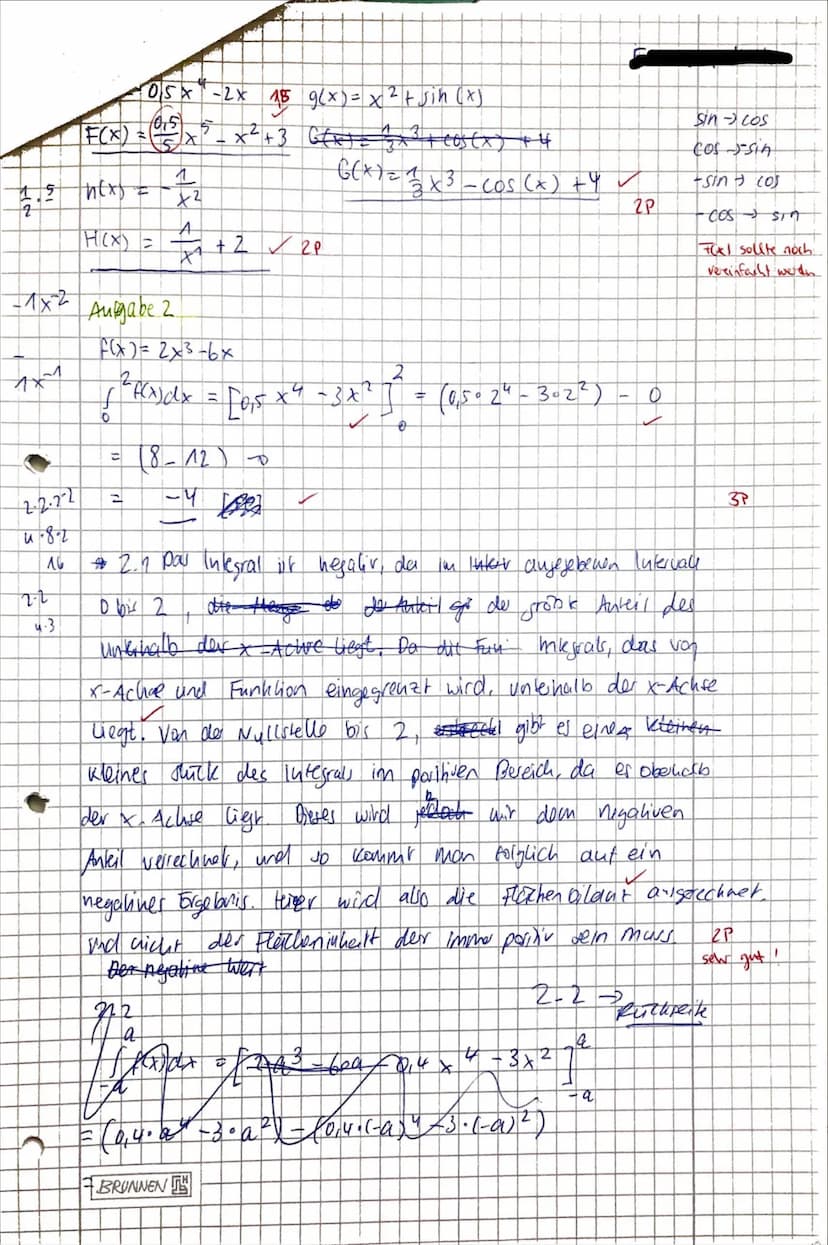 0,5x⁴ - 2x 1,5 g(x) = x² + sin(x)
F(x) = 0,5/5 x⁵ - x² + 3 G(x) = 1/3 x³ + cos(x) + 4
G(x) = 1/3 x³ - cos(x) + 4 ✓ 2P
sin → cos
cos → -sin
-sin → cos
-cos → sin
F(x) sollte noch
vereinfacht werden
1/2 · 5 h(x) = - 1/x²
H(x) = 1/x¹ + 2 ✓ 2P
-1x⁻² Aufgabe 2
f(x) = 2x³ - 6x
1x⁻¹ ∫₀² f(x)dx = [0,5 x⁴ - 3x²]₀² = (0,5 · 2⁴ - 3 · 2²) - 0
= (8 - 12) - 0
2·2·2·2 = -4 ✓ 3P
4·8·2
16 2.1 Das Integral ist negativ, da im angegebenen Intervall
2·2 0 bis 2, die Menge de der Anteil der größte Anteil des
4·3 unterhalb der x-Achse liegt. Da die Fun Integrals, das von
x-Achse und Funktion eingegrenzt wird, unterhalb der x-Achse
liegt. Von der Nullstelle bis 2, gibt es einen kleinen
kleines Stück des Integrals im positiven Bereich, da es oberhalb
der x-Achse liegt. Dieses wird jedoch mit dem negativen
Anteil verrechnet, und so kommt man folglich auf ein
negatives Ergebnis. Hier wird also die Flächenbilanz ausgerechnet.
und nicht der Flächeninhalt der immer positiv sein muss. 2P
Der negative Wert sehr gut!
2.2 → Rückseite
2.2
∫₋ₐᵃ f(x)dx = [2a³ - 6a 0,4x⁴ - 3x²]₋ₐᵃ
= (0,4 · a⁴ - 3 · a²) - (0,4 · (-a)⁴ - 3 · (-a)²)
BRUNNEN